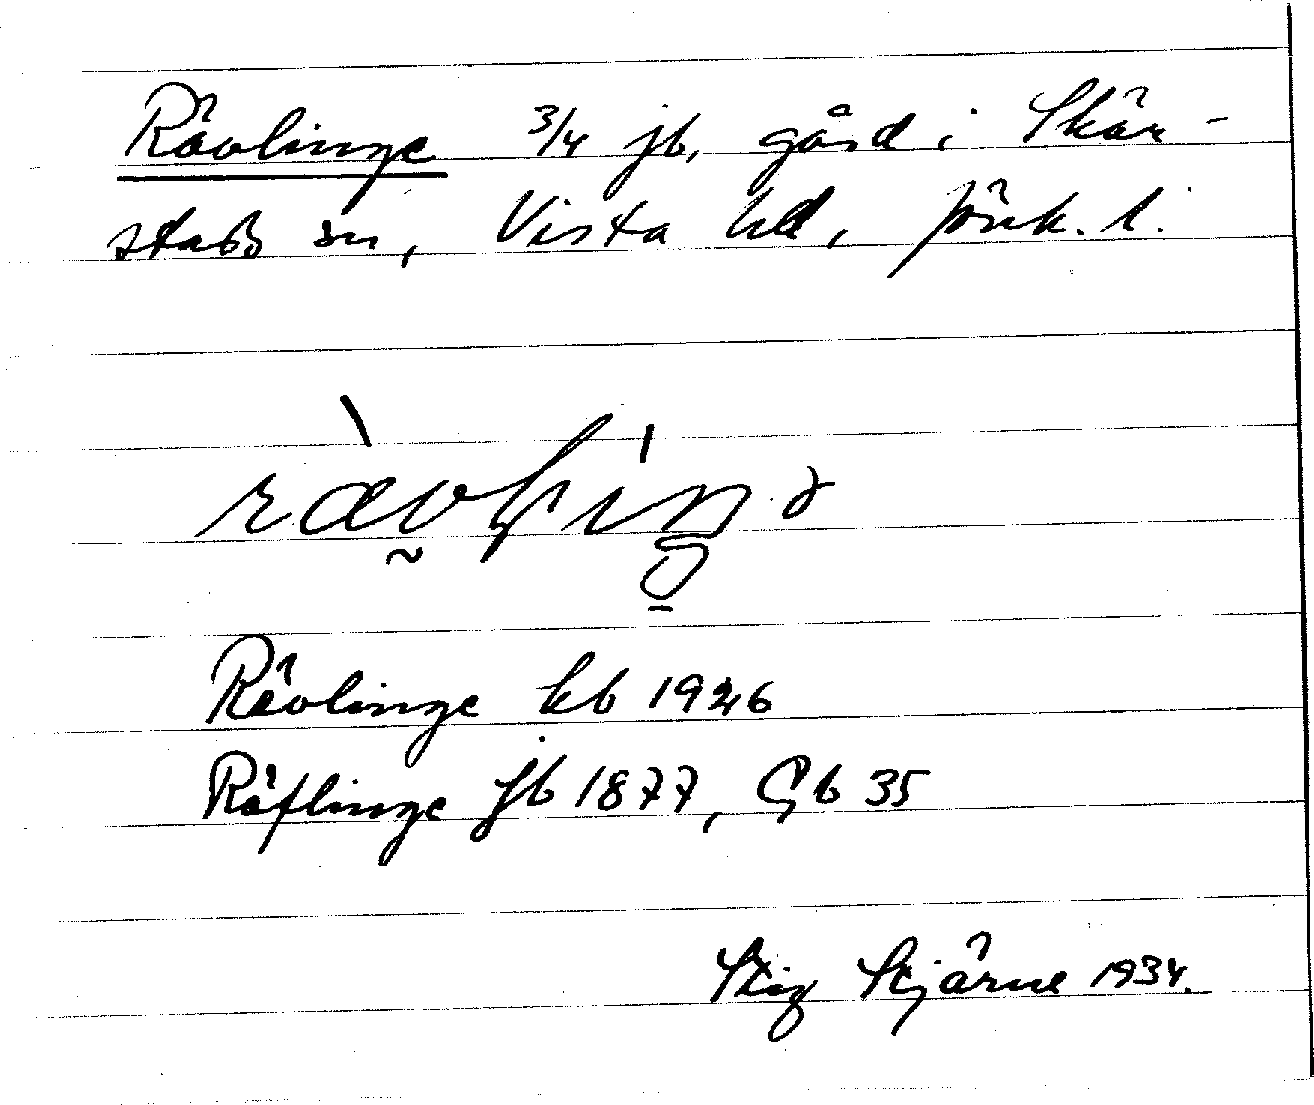 Rävlinge 3/4 jb, gård i Skär-
stads sn, Vista hd, Jönk. l.
Rävlinge kb 1926
Räflinge Jb 1877, Gb 35
Stig Skjärne 1934.